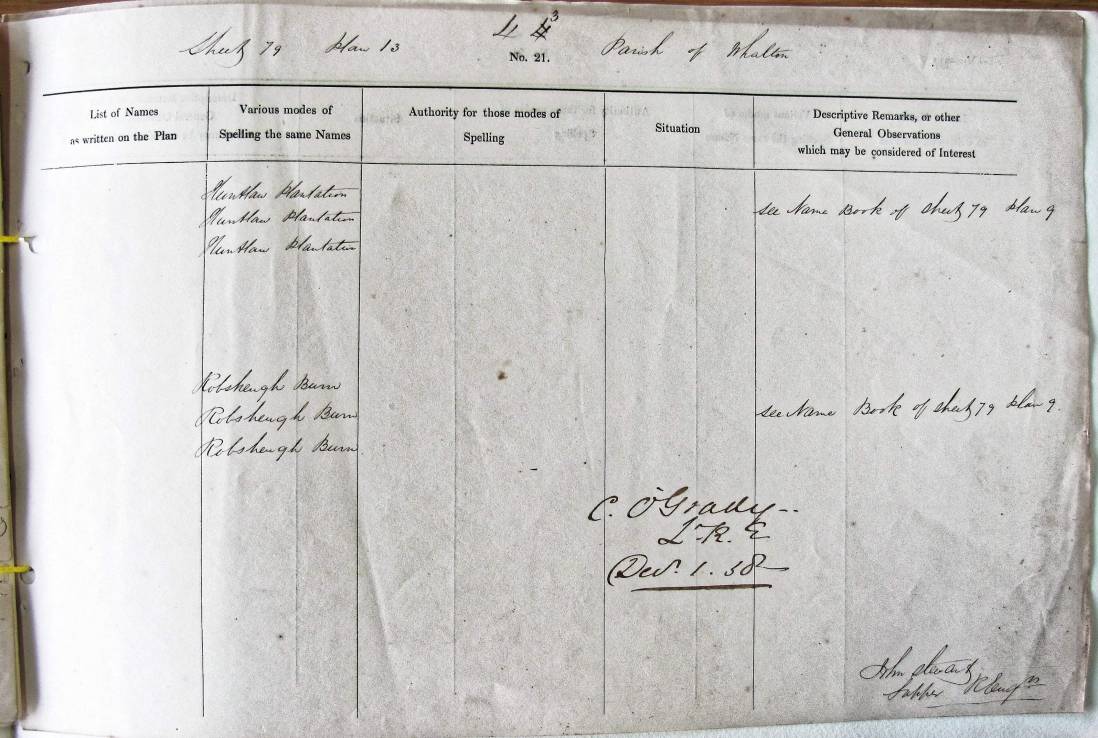 4 4 3
Sheet 79 Plan 13 No. 21. Parish of Whalton
List of Names
as written on the Plan
Various modes of
Spelling the same Names
Authority for those modes of
Spelling
Situation
Descriptive Remarks, or other
General Observations
which may be considered of Interest
Huntlaw Plantation
Huntlaw Plantation
Huntlaw Plantation
see Name Book of sheet 79 Plan 9
Robsheugh Burn
Robsheugh Burn
Robsheugh Burn
see Name Book of sheet 79 Plan 9.
C. O'Grady
Lt R. E
Dec. 1. 58
John Stewart
Sapper R Engrs